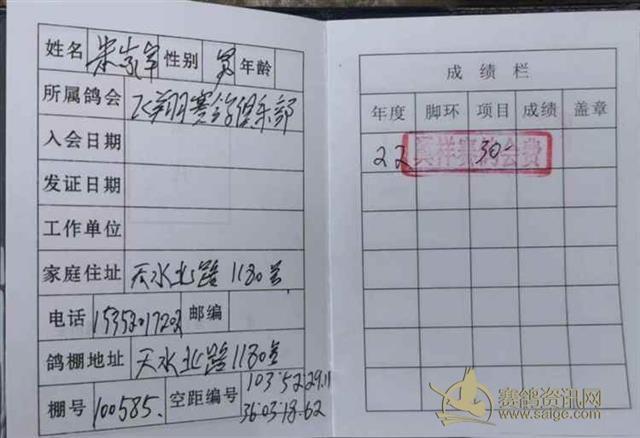 姓名 朱 军 性别 男 年龄
所属鸽会 飞翔赛鸽俱乐部
入会日期
发证日期
工作单位
家庭住址 天水北路1180号
电话 15352017202 邮编
鸽棚地址 天水北路1180号
棚号 100585. 空距编号 103:52:29.11
36:03:18.62
成绩栏
年度 脚环 项目 成绩 盖章
22 30-
会费
赛鸽资讯网
www.saigc.com